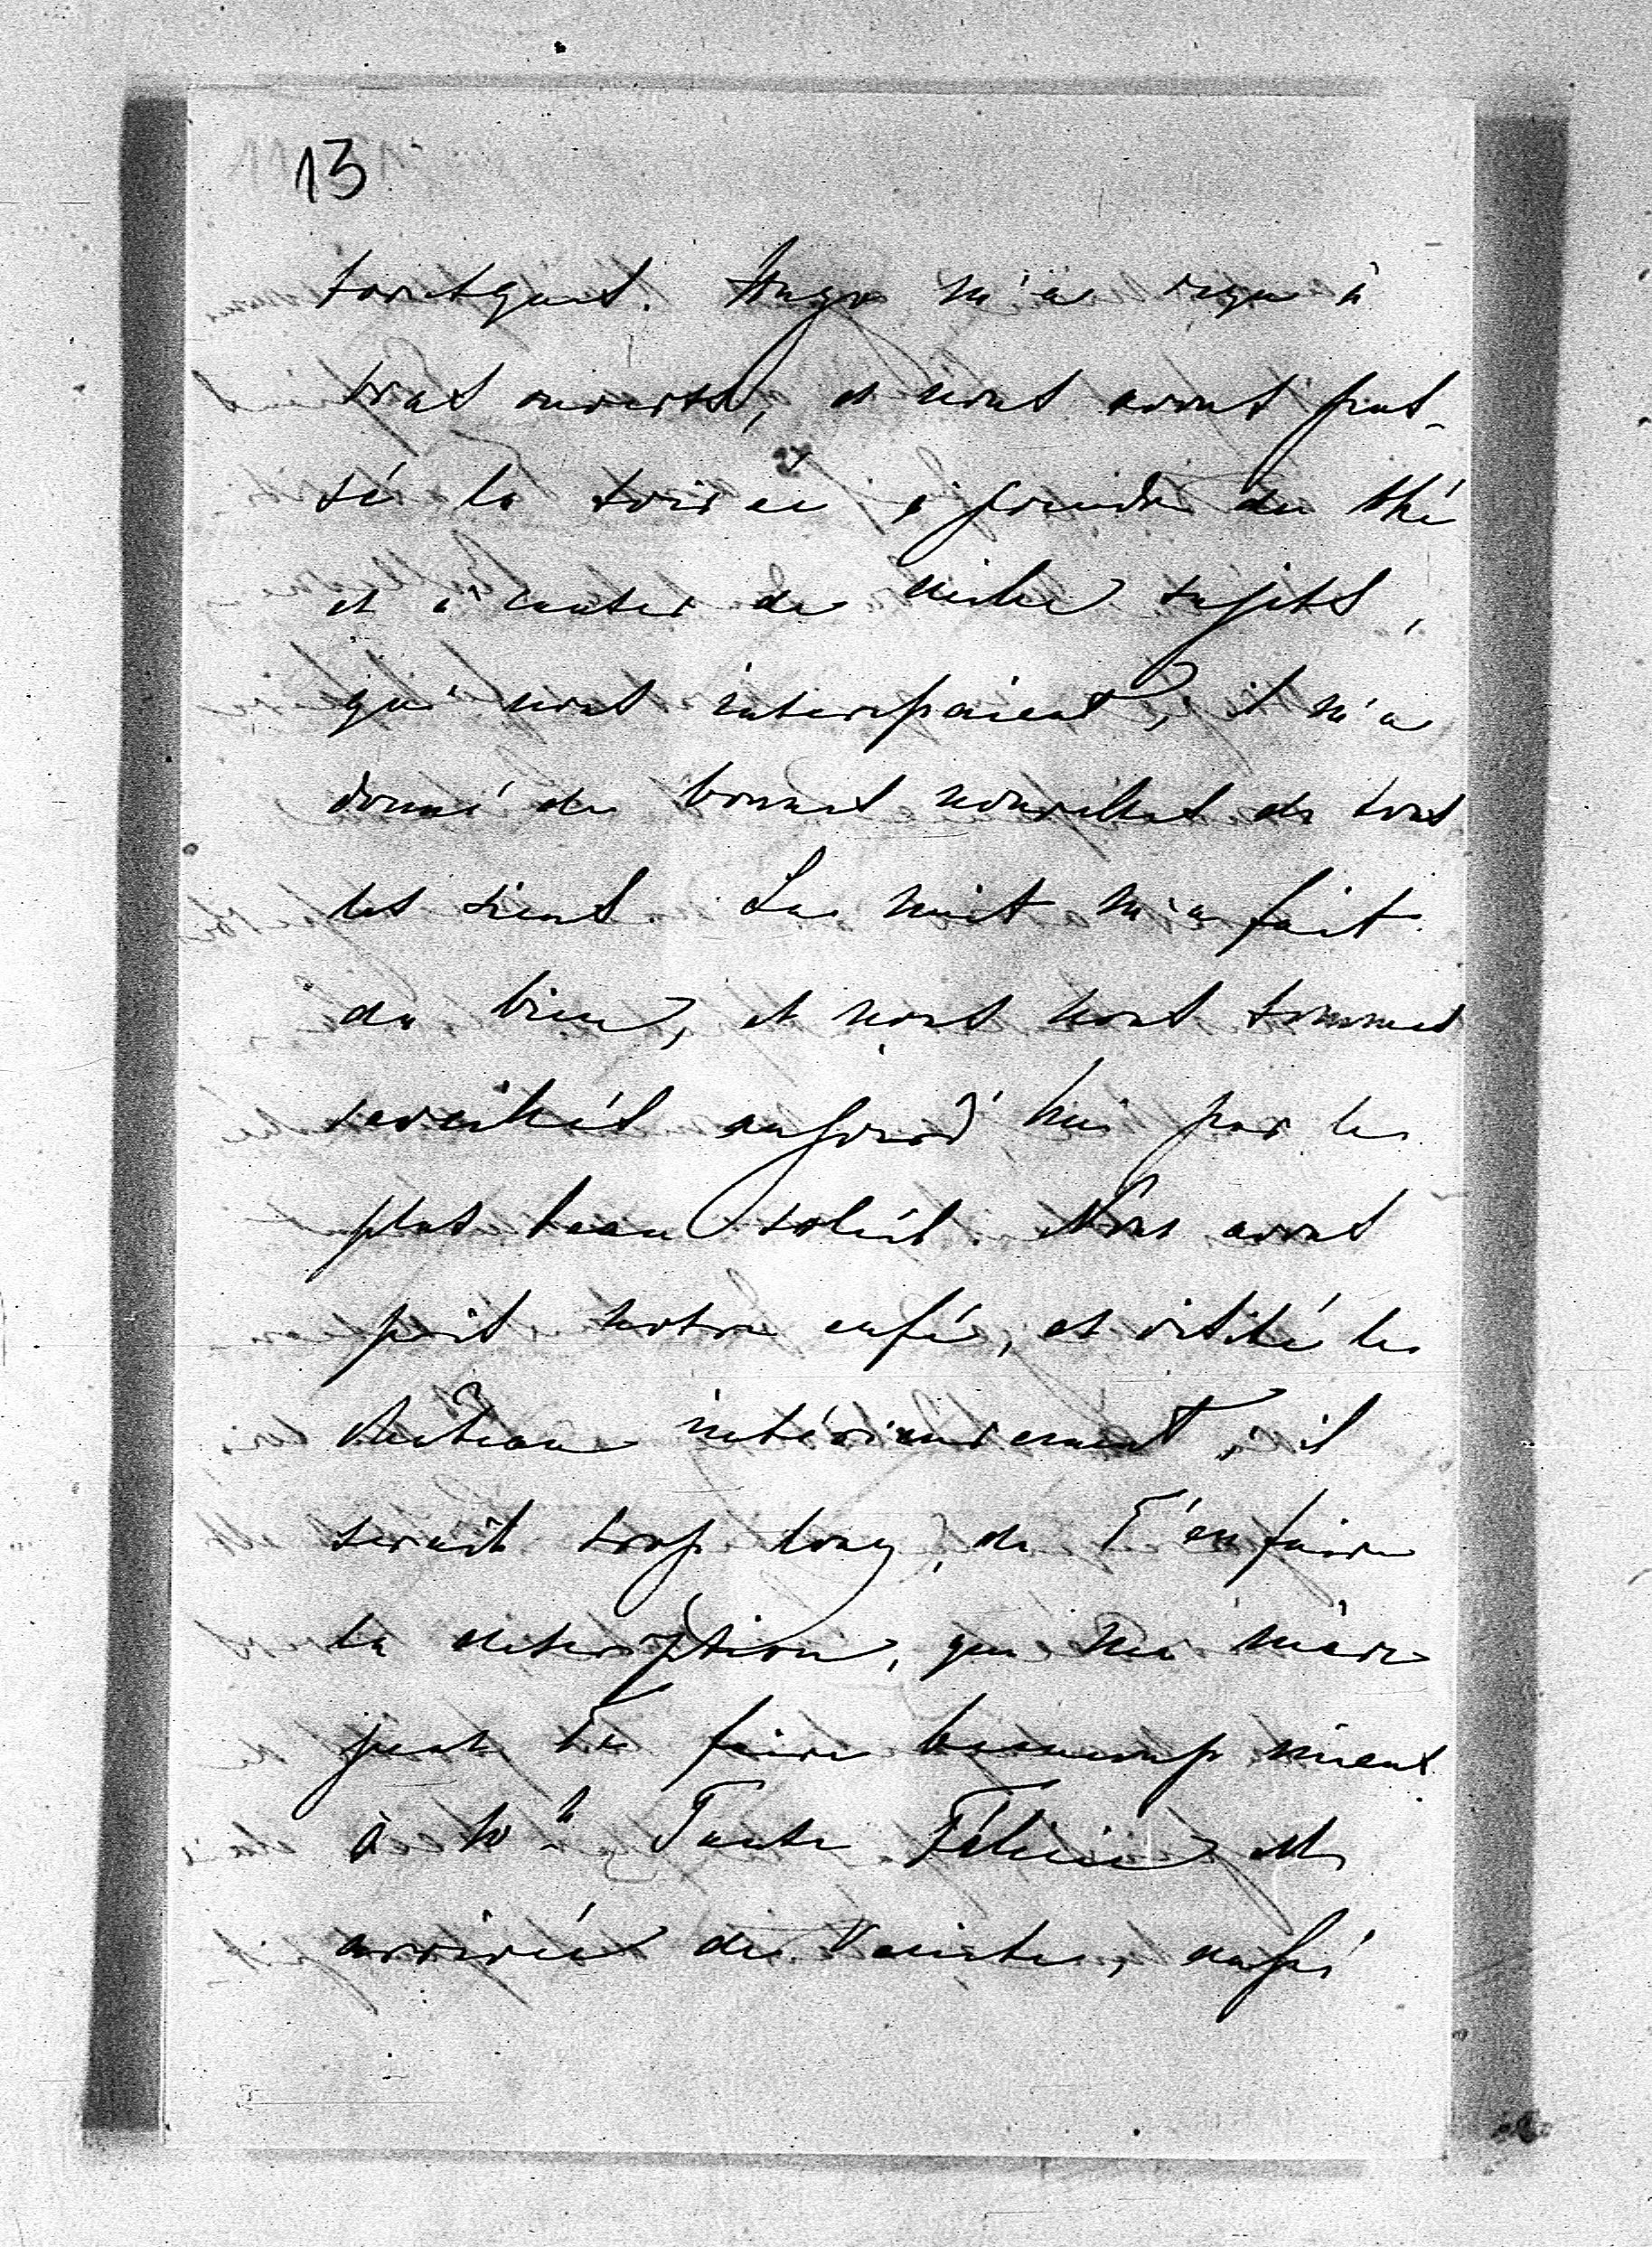 13
Hugo m'a reçu à
bras ouverts, et nous avons pas-
sé la soirée à prendre du thé
et à causer de mille sujets,
qui nous intéressaient, il m'a
donné de bonnes nouvelles de tous
les siens. La nuit m'a fait
du bien, et nous nous sommes
reveillés aujourd'hui par le
plus beau soleil. Nous avons
pris notre café, et visité le
chateau intérieurement, il
serait trop long, de T'en faire
la description, que Ta mère
peut Te faire beaucoup mieux
à Tante Félicie et
arrivée de aussi